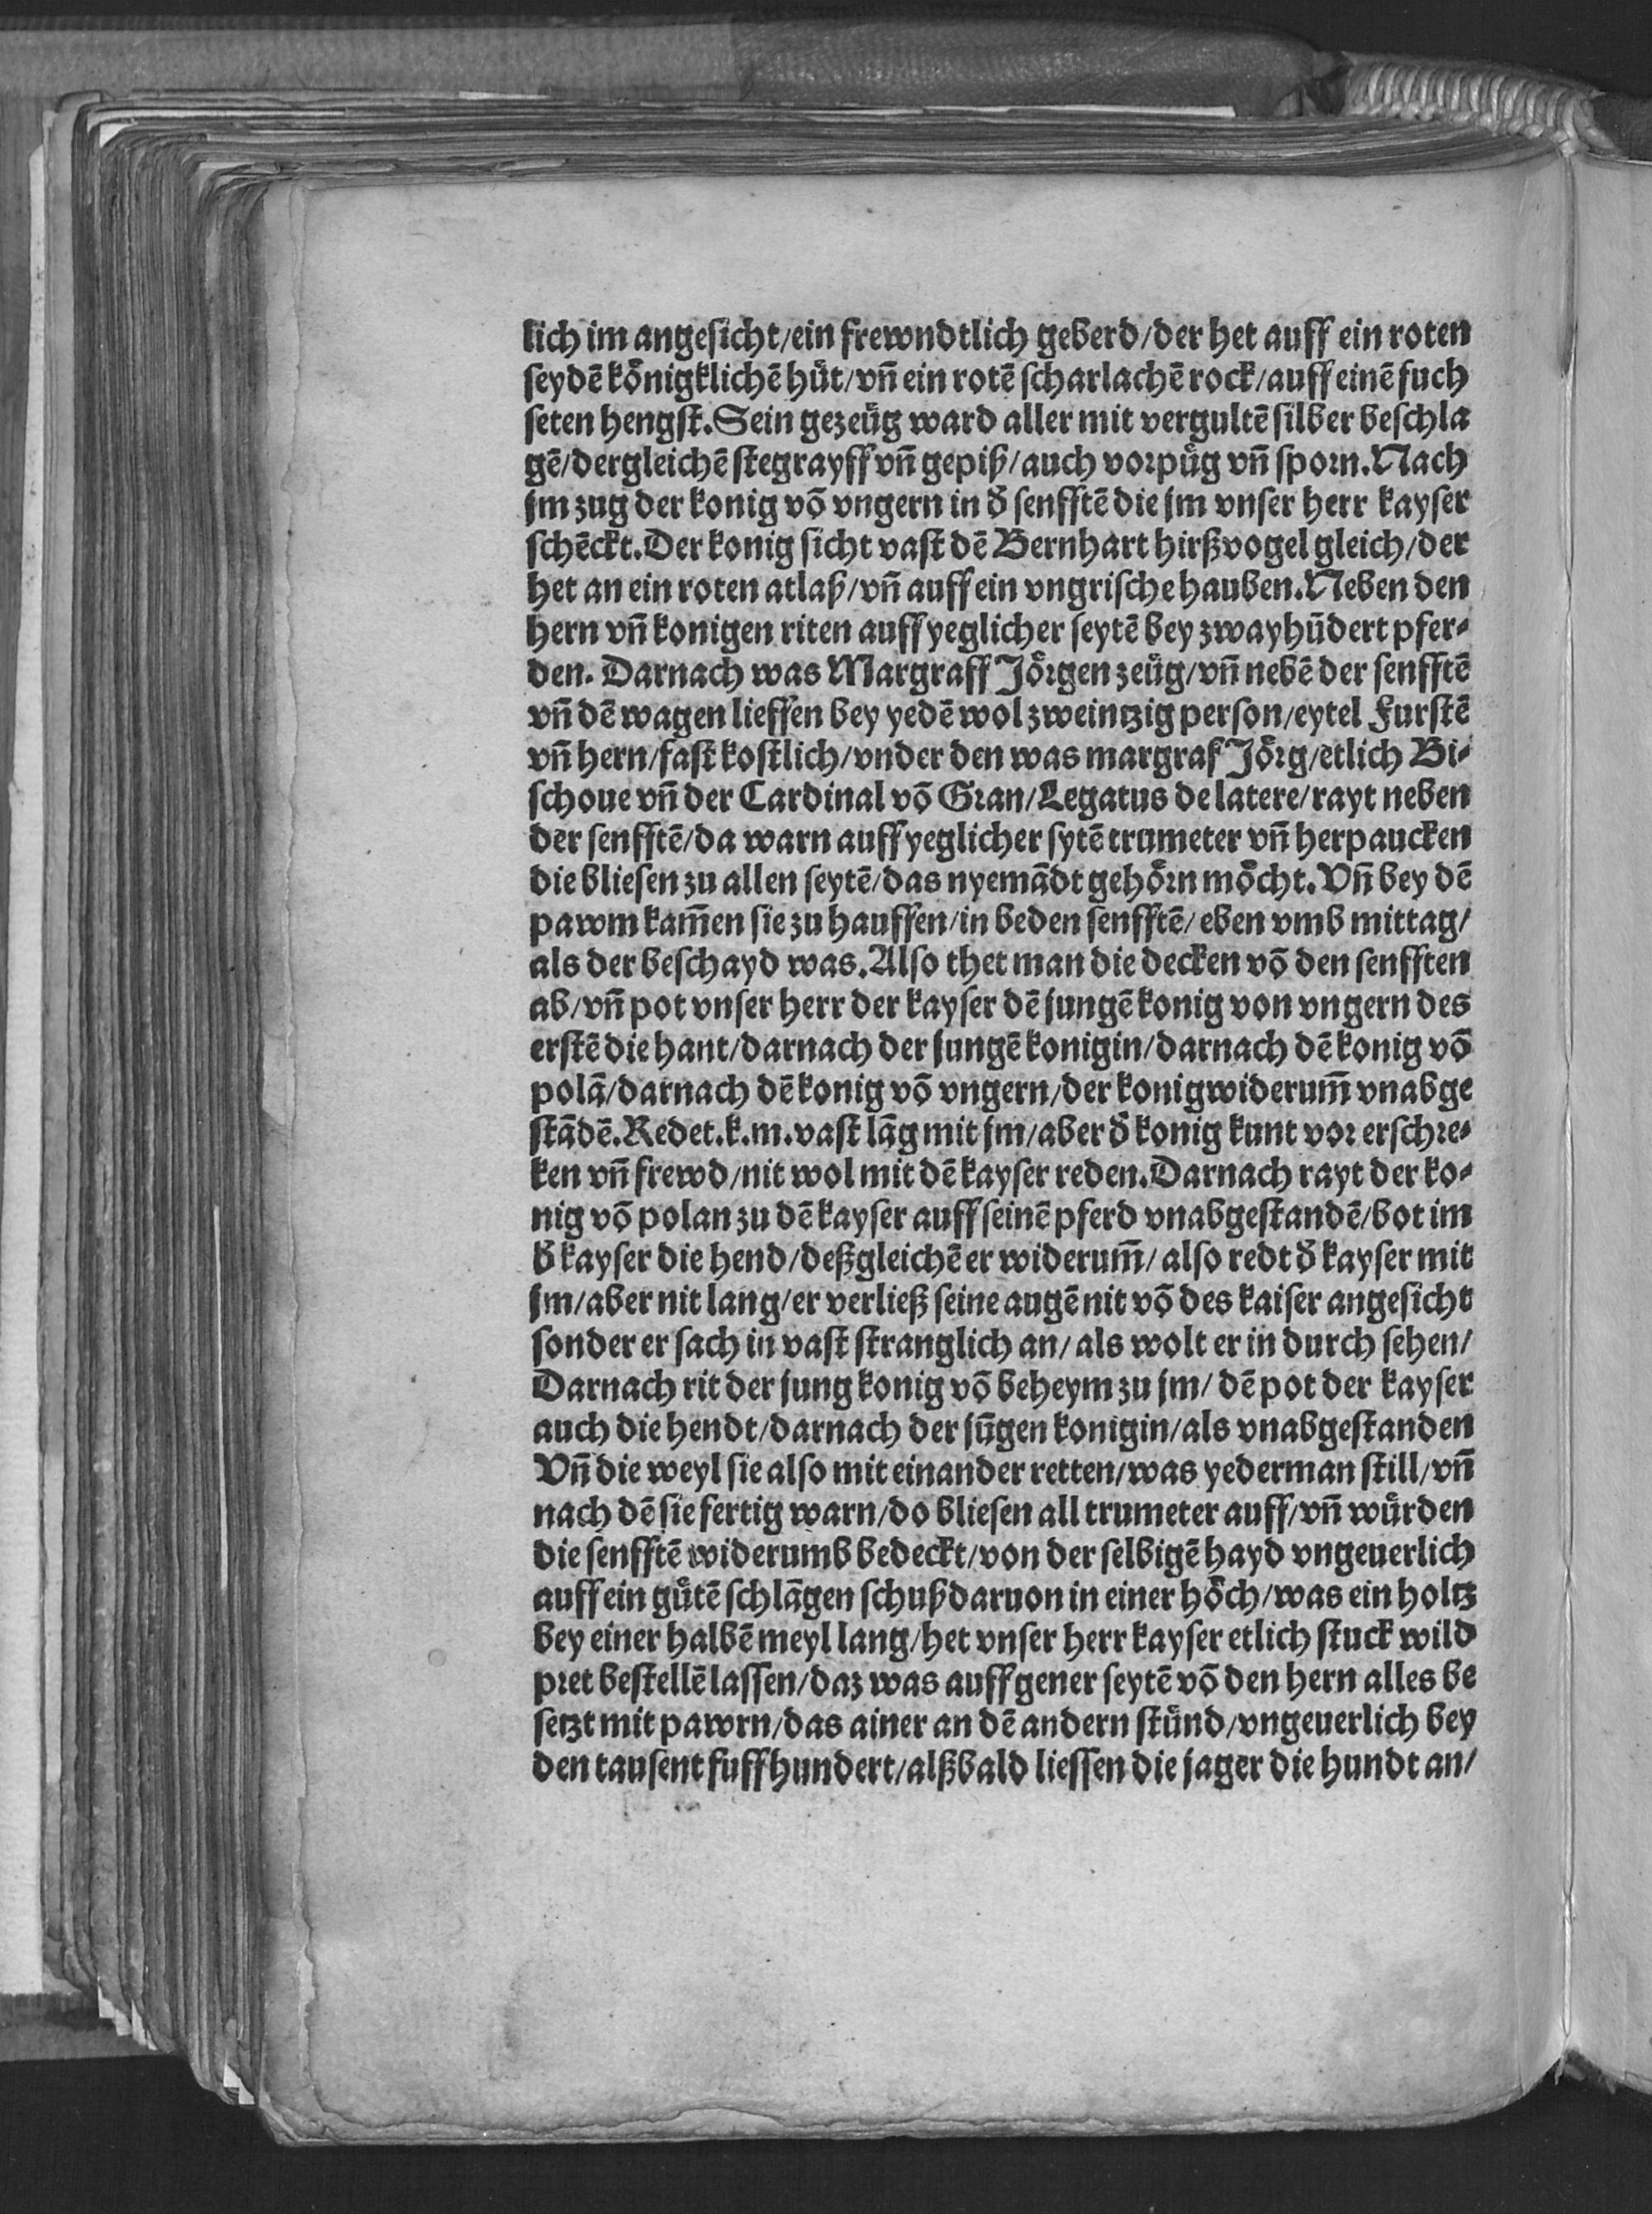 lich im angesicht/ein frewndtlich geberd/der het auff ein roten
seydē kônigklichē hůt/vn̄ ein rotē scharlachē rock/auff einē fuch
seten hengst. Sein gezeůg ward aller mit vergultē silber beschla
gē/dergleichē stegrayff vn̄ gepiß/auch vorpůg vn̄ sporn. Nach
jm zug der konig vō vngern in d̄ senfftē die jm vnser herr kayser
schēckt. Der konig sicht vast dē Bernhart hirßvogel gleich/der
het an ein roten atlaß/vn̄ auff ein vngrische hauben. Neben den
hern vn̄ konigen riten auff yeglicher seytē bey zwayhūdert pfer⸗
den. Darnach was Margraff Jôrgen zeůg/vn̄ nebē der senfftē
vn̄ dē wagen lieffen bey yedē wol zweintzig person/eytel Furstē
vn̄ hern/fast kostlich/vnder den was margraf Jôrg/etlich Bi⸗
schoue vn̄ der Cardinal vō Gran/Legatus de latere/rayt neben
der senfftē/da warn auff yeglicher sytē trumeter vn̄ herpaucken
die bliesen zu allen seytē/das nyemādt gehôrn môcht. Vn̄ bey dē
pawm kam̄en sie zu hauffen/in beden senfftē/eben vmb mittag/
als der beschayd was. Also thet man die decken vō den senfften
ab/vn̄ pot vnser herr der kayser dē jungē konig von vngern des
erstē die hant/darnach der jungē konigin/darnach dē konig vō
polā/darnach dē konig vō vngern/der konig widerum̄ vnabge
stādē. Redet.k.m.vast lāg mit jm/aber d̄ konig kunt vor erschre⸗
ken vn̄ frewd/nit wol mit dē kayser reden. Darnach rayt der ko⸗
nig vō polan zu dē kayser auff seinē pferd vnabgestandē/bot im
d̄ kayser die hend/deßgleichē er widerum̄/also redt d̄ kayser mit
jm/aber nit lang/er verließ seine augē nit vō des kaiser angesicht
sonder er sach in vast stranglich an/als wolt er in durch sehen/
Darnach rit der jung konig vō beheym zu jm/dē pot der kayser
auch die hendt/darnach der jūgen konigin/als vnabgestanden
Vn̄ die weyl sie also mit einander retten/was yederman still/vn̄
nach dē sie fertig warn/do bliesen all trumeter auff/vn̄ wůrden
die senfftē widerumb bedeckt/von der selbigē hayd vngeuerlich
auff ein gůtē schlāgen schuß daruon in einer hôch/was ein holtz
bey einer halbē meyl lang/het vnser herr kayser etlich stuck wild
pret bestellē lassen/daz was auff gener seytē vō den hern alles be
setzt mit pawrn/das ainer an dē andern stůnd/vngeuerlich bey
den tausent fuffhundert/alßbald liessen die jager die hundt an/